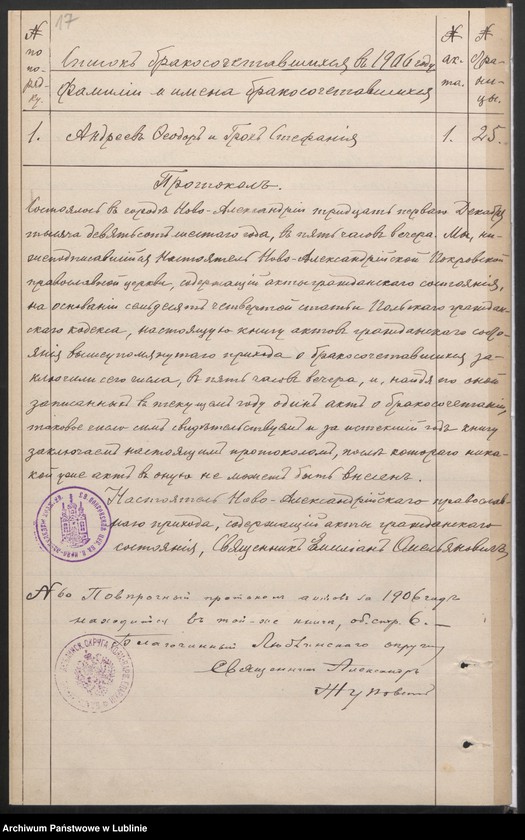 17
№ по по-ряд-ку.
Списокъ бракосочетавшихся въ 1906 году
Фамиліи и имена бракосочетавшихся
№ ак-та.
№ стра-ни-цы.
1. Андреевъ Ѳеодоръ и Стефанія 1. 25.
Протоколъ.
Состоялось въ городѣ Ново-Александріи тридцать перваго Декабря
тысяча девятьсотъ шестого года, въ пять часовъ вечера. Мы, ни-
жеподписавшійся Настоятель Ново-Александрійской Покровской
православной церкви, содержащій акты гражданскаго состоянія,
на основаніи семьдесятъ четвертой статьи Польскаго граждан-
скаго кодекса, настоящую книгу актовъ гражданскаго состо-
янія вышеупомянутаго прихода о бракосочетавшихся за-
ключили сего числа, въ пять часовъ вечера, и, найдя по оной
записаннымъ въ текущемъ году одинъ актъ о бракосочетаніи,
таковое число симъ свидѣтельствуемъ и за истекшій годъ книгу
заключаемъ настоящимъ протоколомъ, послѣ котораго ника-
кой уже актъ въ оную не можетъ быть внесенъ.
Настоятель Ново-Александрійскаго православ-
наго прихода, содержащій акты гражданскаго
состоянія, Священникъ Емиліанъ Омельяновичъ
№ 60 протоколъ актовъ за 1906 годъ
находится въ той-же книгѣ, об. стр. 6.
Благочинный Люблинскаго округа
Священникъ Александръ
Archiwum Państwowe w Lublinie